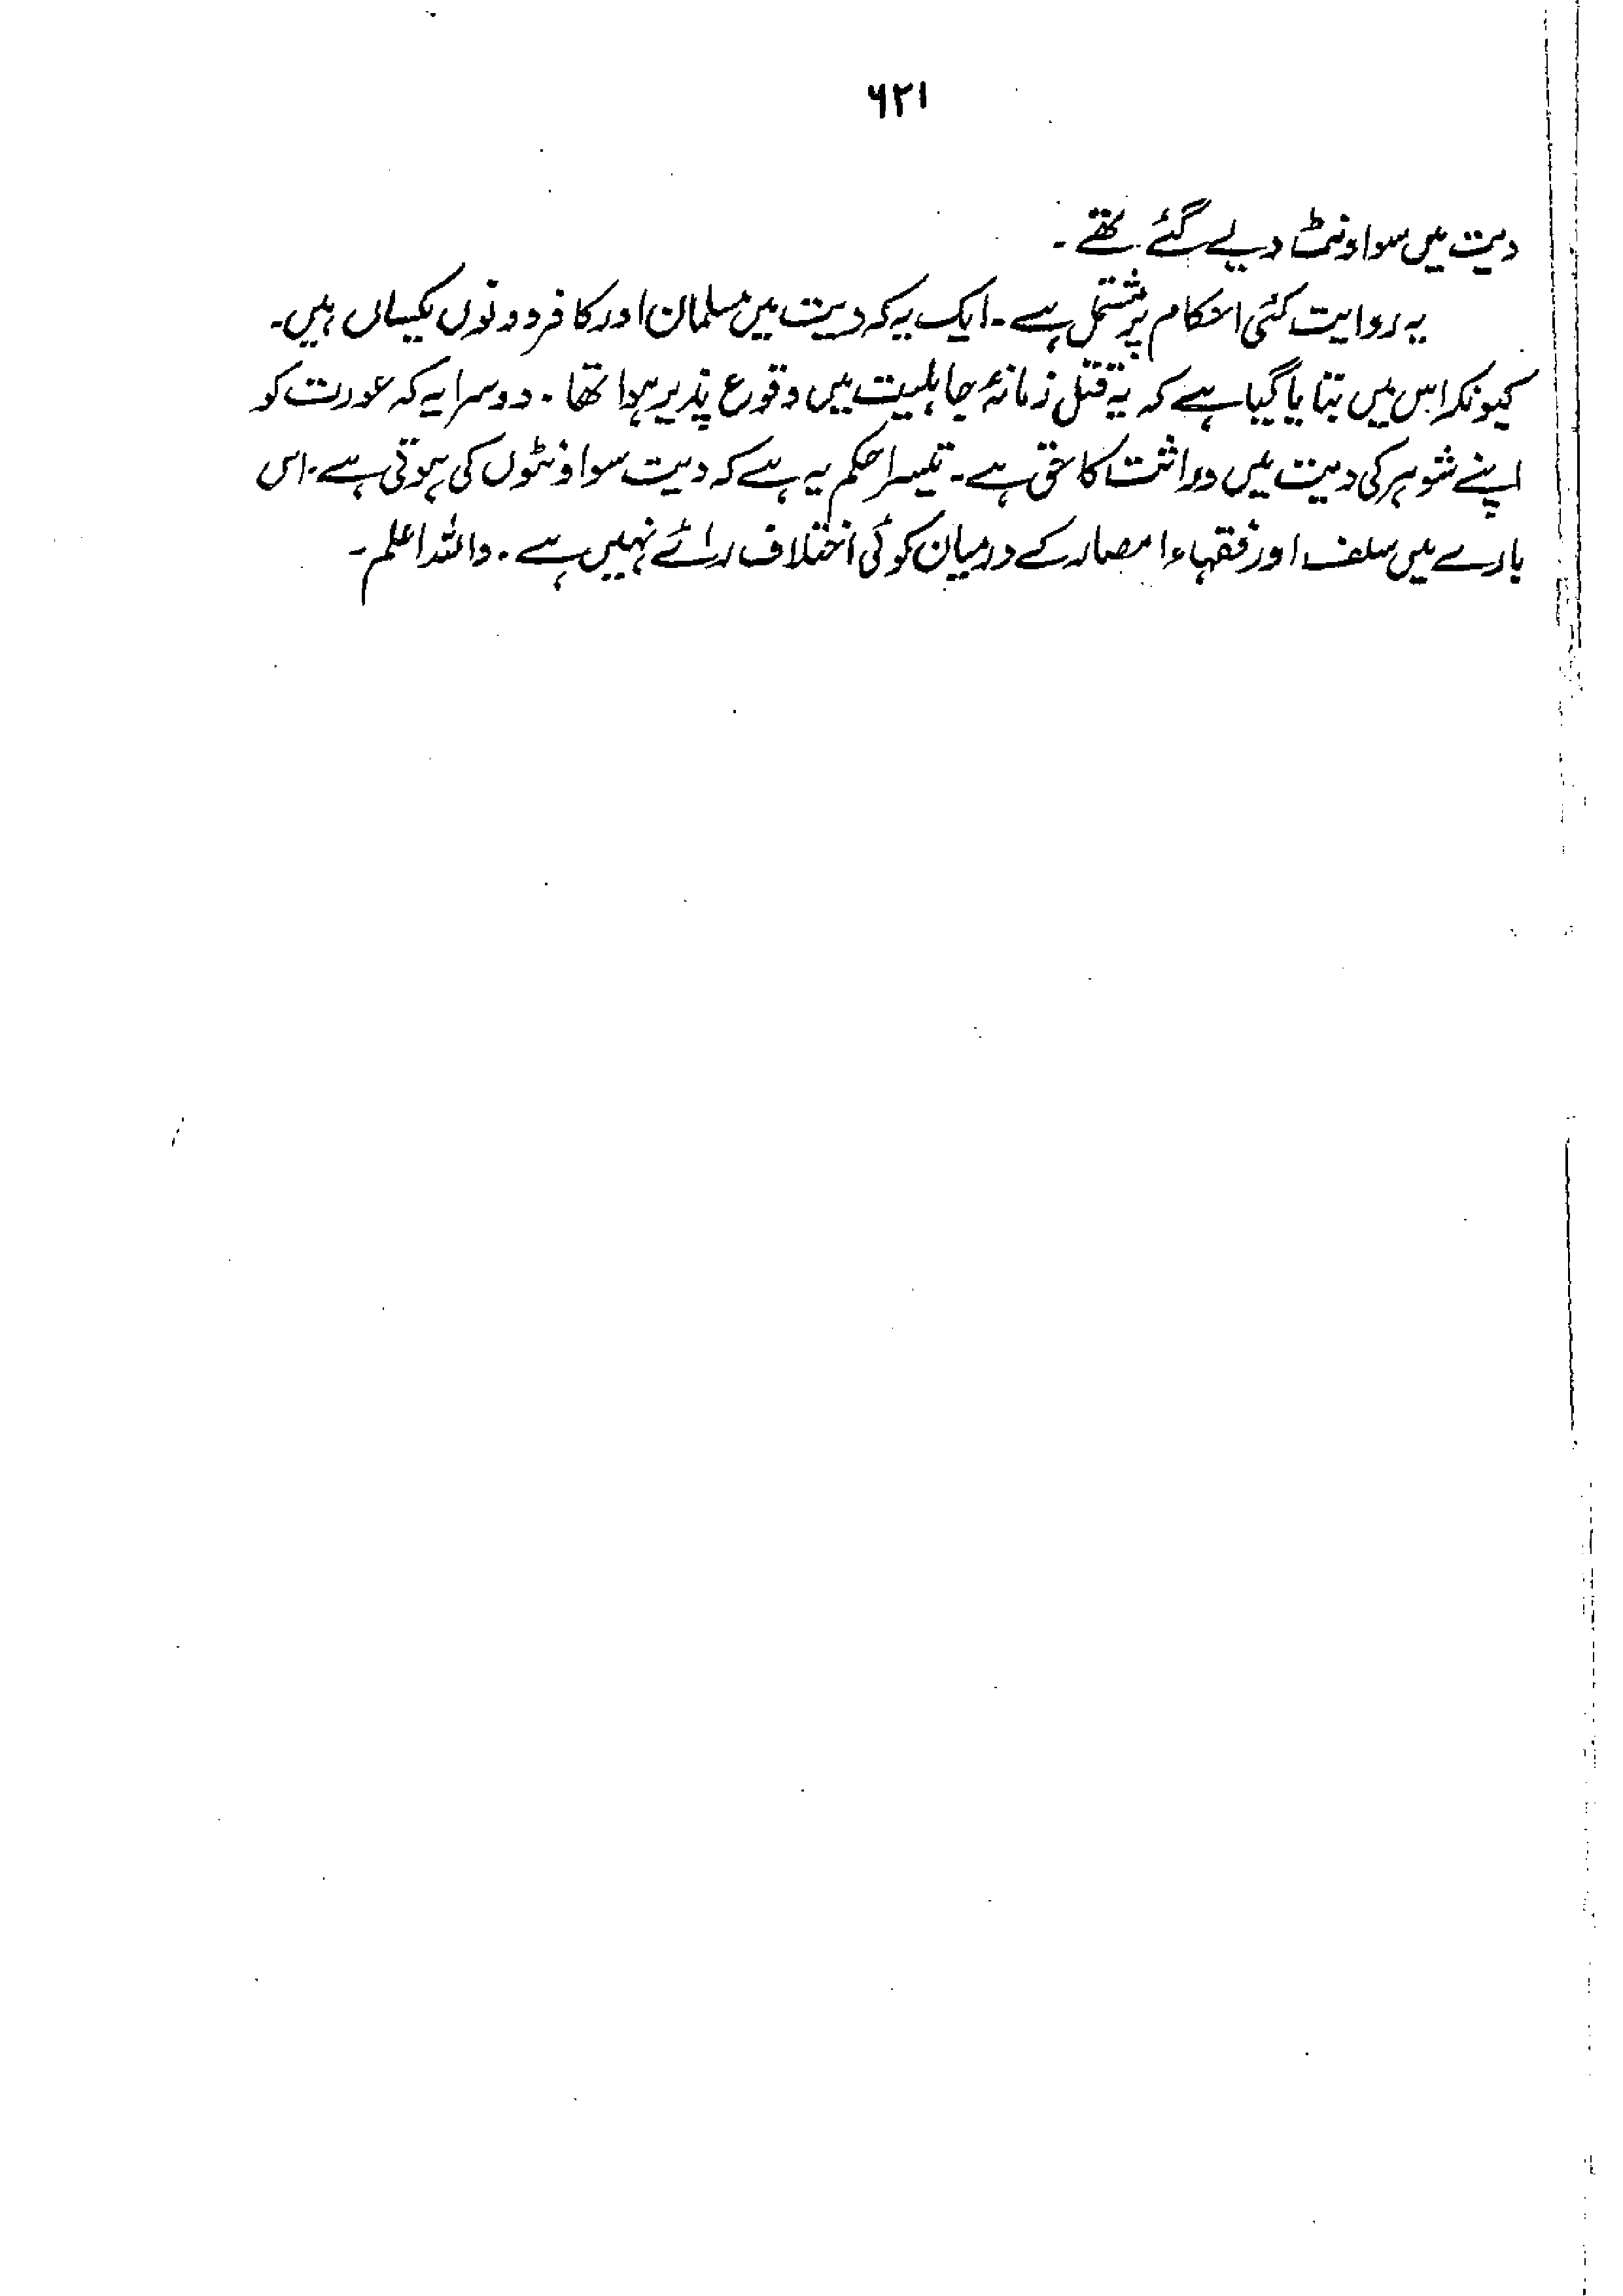 ۶۲۱
دیت میں سو اونٹ دیے گئے تھے۔
یہ روایت کئی احکام پر مشتمل ہے۔ ایک یہ کہ دیت میں مسلمان اور کافر دونوں یکساں ہیں۔
کیونکہ اس میں بتایا گیا ہے کہ یہ قتل زمانۂ جاہلیت میں وقوع پذیر ہوا تھا۔ دوسرا یہ کہ عورت کو
اپنے شوہر کی دیت میں وراثت کا حق ہے۔ تیسرا حکم یہ ہے کہ دیت سو اونٹوں کی ہوتی ہے۔ اس
بارے میں سلف اور فقہاء امصار کے درمیان کوئی اختلاف رائے نہیں ہے۔ واللہ اعلم۔